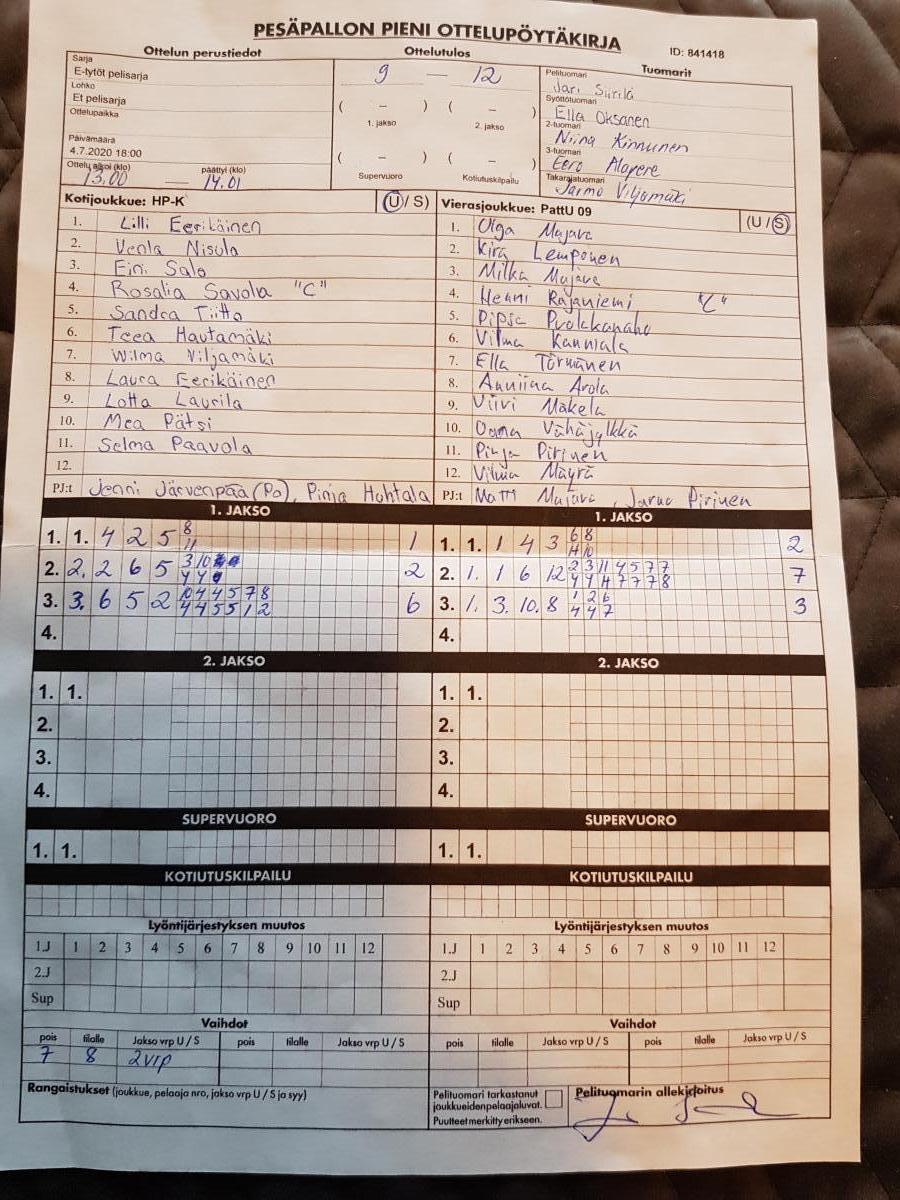 PESÄPALLON PIENI OTTELUPÖYTÄKIRJA
ID: 841418
Ottelun perustiedot
Sarja
E-tytöt pelisarja
Lohko
Et pelisarja
Ottelupaikka
Päivämäärä
4.7.2020 18:00
Ottelu alkoi (klo) päättyi (klo)
13.00 — 14.01
Ottelutulos
9 — 12
( – ) ( – )
1. jakso 2. jakso
( – ) ( – )
Supervuoro Kotiutuskilpailu
Tuomarit
Pelituomari
Jari Siirilä
Syöttötuomari
Ella Oksanen
2-tuomari
Niina Kinnunen
3-tuomari
Eero
Takarajatuomari
Jarmo Viljamäki
Kotijoukkue: HP-K (U / S)
1. Lilli Eerikäinen
2. Venla Nisula
3. Eini Salo
4. Rosalia Savola "C"
5. Sandra Tiitto
6. Teea Hautamäki
7. Wilma Viljamäki
8. Laura Eerikäinen
9. Lotta Laurila
10. Mea Pätsi
11. Selma Paavola
12.
PJ:t Jenni Järvenpää (Po), Pinja Huhtala
Vierasjoukkue: PattU 09 (U / S)
1. Olga Majava
2. Kira Lemponen
3. Milka Majava
4. Henni Rajaniemi "C"
5. Pipsa Puolakanaho
6. Vilma Kanniala
7. Ella Törmänen
8. Anniina Arola
9. Viivi Mäkelä
10. Oona Vähäjylkkä
11. Pinja Pirinen
12. Vilma Mäyrä
PJ:t Matti Majava, Jarno Pirinen
1. JAKSO
1. 1. 4 2 5 8 1
11
2. 2. 2 6 5 3 10 2
4 4
3. 3. 6 5 2 10 4 4 5 7 8 6
4 4 5 5 1 2
4.
1. JAKSO
1. 1. 1 4 3 6 8 2
11 10
2. 1. 1 6 12 2 3 11 4 5 7 7 7
4 4 11 7 7 7 8
3. 1. 3. 10. 8 1 2 6 3
4 4 7
4.
2. JAKSO
1. 1.
2.
3.
4.
2. JAKSO
1. 1.
2.
3.
4.
SUPERVUORO
1. 1.
SUPERVUORO
1. 1.
KOTIUTUSKILPAILU
KOTIUTUSKILPAILU
Lyöntijärjestyksen muutos
1.J 1 2 3 4 5 6 7 8 9 10 11 12
2.J
Sup
Lyöntijärjestyksen muutos
1.J 1 2 3 4 5 6 7 8 9 10 11 12
2.J
Sup
Vaihdot
pois tilalle Jakso vrp U / S pois tilalle Jakso vrp U / S
7 8 2vrp
Vaihdot
pois tilalle Jakso vrp U / S pois tilalle Jakso vrp U / S
Rangaistukset (joukkue, pelaaja nro, jakso vrp U / S ja syy)
Pelituomari tarkastanut
joukkueidenpelaajaluvat.
Puutteet merkitty erikseen.
Pelituomarin allekirjoitus